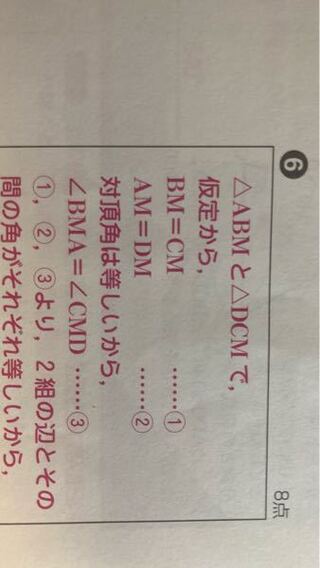 ❻
8点
△ABMと△DCMで,
仮定から,
BM=CM ……①
AM=DM ……②
対頂角は等しいから,
∠BMA=∠CMD ……③
①, ②, ③より, 2組の辺とその
間の角がそれぞれ等しいから,